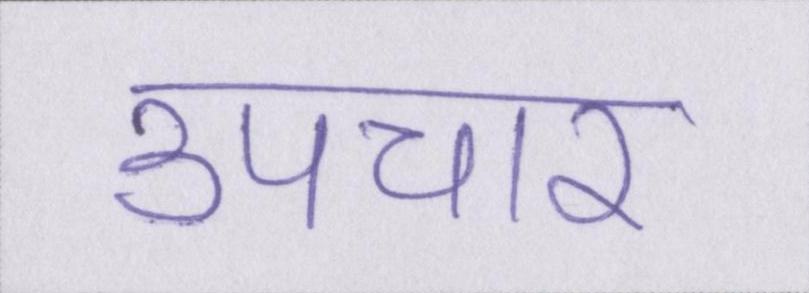 उपचार